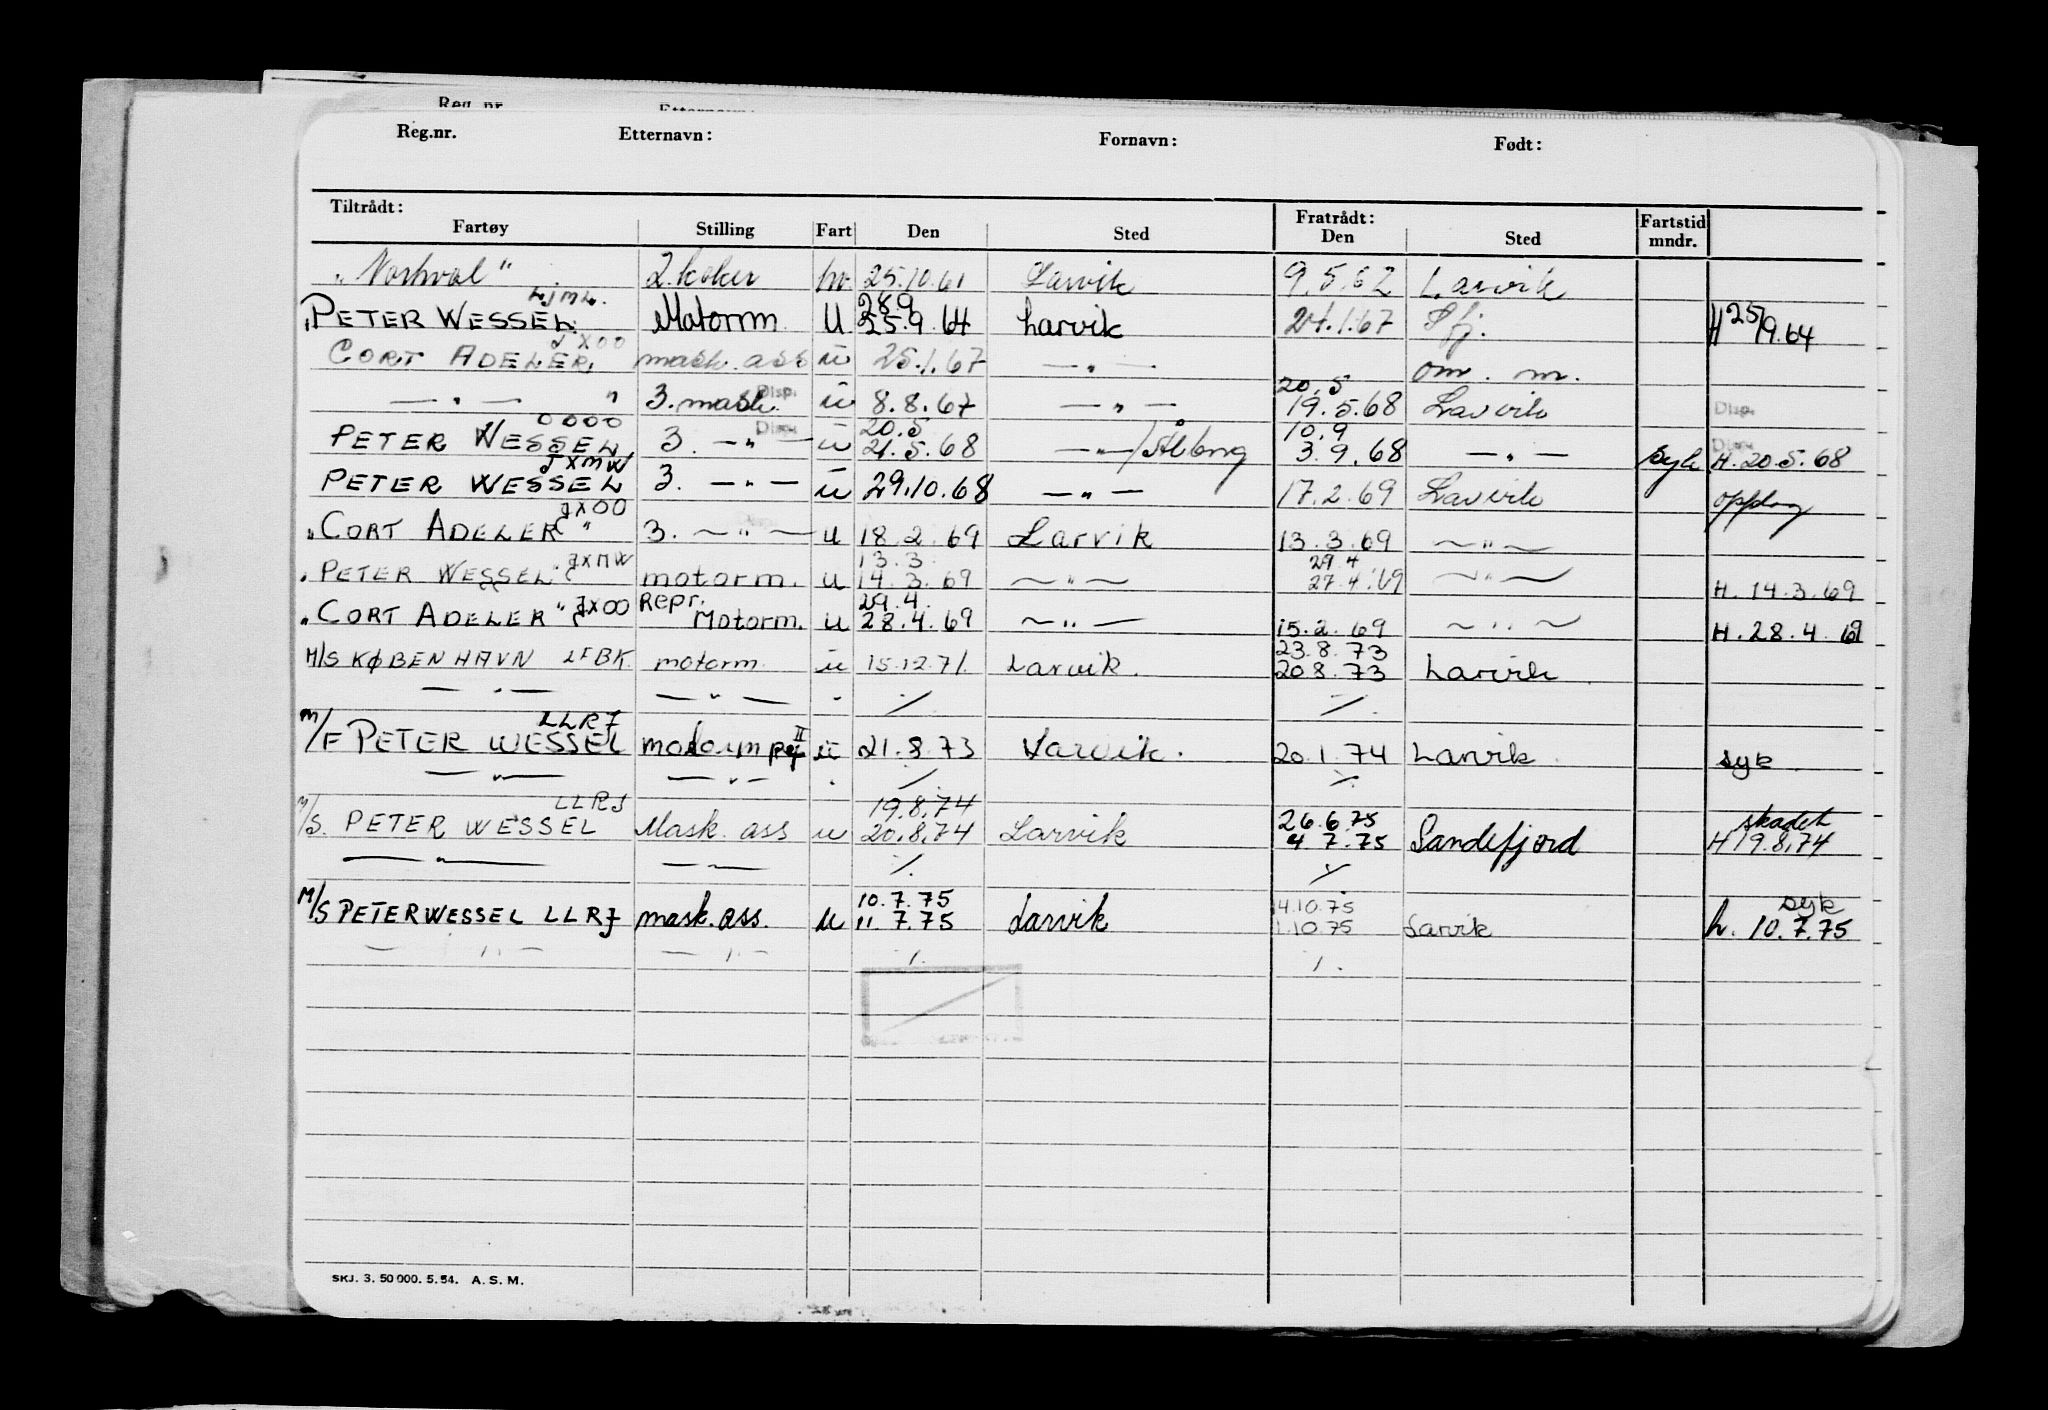 Reg.nr. Etternavn:
Reg.nr. Etternavn: Fornavn: Født:
Tiltrådt: Fratrådt: Fartstid mndr.
Fartøy Stilling Fart Den Sted Den Sted
2. kokk 25.10.61 Larvik 9.5.62 Larvik
LJML. 28.9
"PETER WESSEL Motorm. U 25.9.64 Larvik 24.1.67 Sfj. H 25/9.64
JXOO
CORT ADELER mask. ass u 25.1.67 — " — om. m.
Disp. 20.5
— " — " 3. mask. u 8.8.67 — " — 19.5.68 Larvik Disp.
OOOO Disp. 20.5 10.9 Disp.
PETER WESSEL 3. — " — u 21.5.68 — " — / Ålborg 3.9.68 — " — Syk H. 20.5.68
JXMW
PETER WESSEL 3. — " — u 29.10.68 — " — 17.2.69 Larvik oppdrag
JXOO
"CORT ADELER" 3. — " — u 18.2.69 Larvik 13.3.69 — " —
JXMW 13.3 29.4
"PETER WESSEL" motorm. u 14.3.69 — " — 27.4.69 — " — H. 14.3.69
Repr. 29.4.
"CORT ADELER" JXOO Motorm. u 28.4.69 — " — 15.2.69 — " — H. 28.4.69
23.8.73
M/S KØBENHAVN LFBK motorm. u 15.12.71 Larvik. 20.8.73 Larvik
— " — — " — " ./. ./.
LLRJ II
M/F PETER WESSEL motorm rep u 21.8.73 Larvik. 20.1.74 Larvik syk
— " — — " — " ./. ./.
LLRJ 19.8.74 26.6.75 skadet
M/S. PETER WESSEL Mask. ass u 20.8.74 Larvik 4.7.75 Sandefjord H 19.8.74
— " — — " — ./. ./.
10.7.75 14.10.75 syk
M/S PETER WESSEL LLRJ mask. ass. u 11.7.75 Larvik 1.10.75 Larvik h. 10.7.75
— " — — " — ./. ./.
SKJ. 3. 50 000. 5. 54. A. S. M.